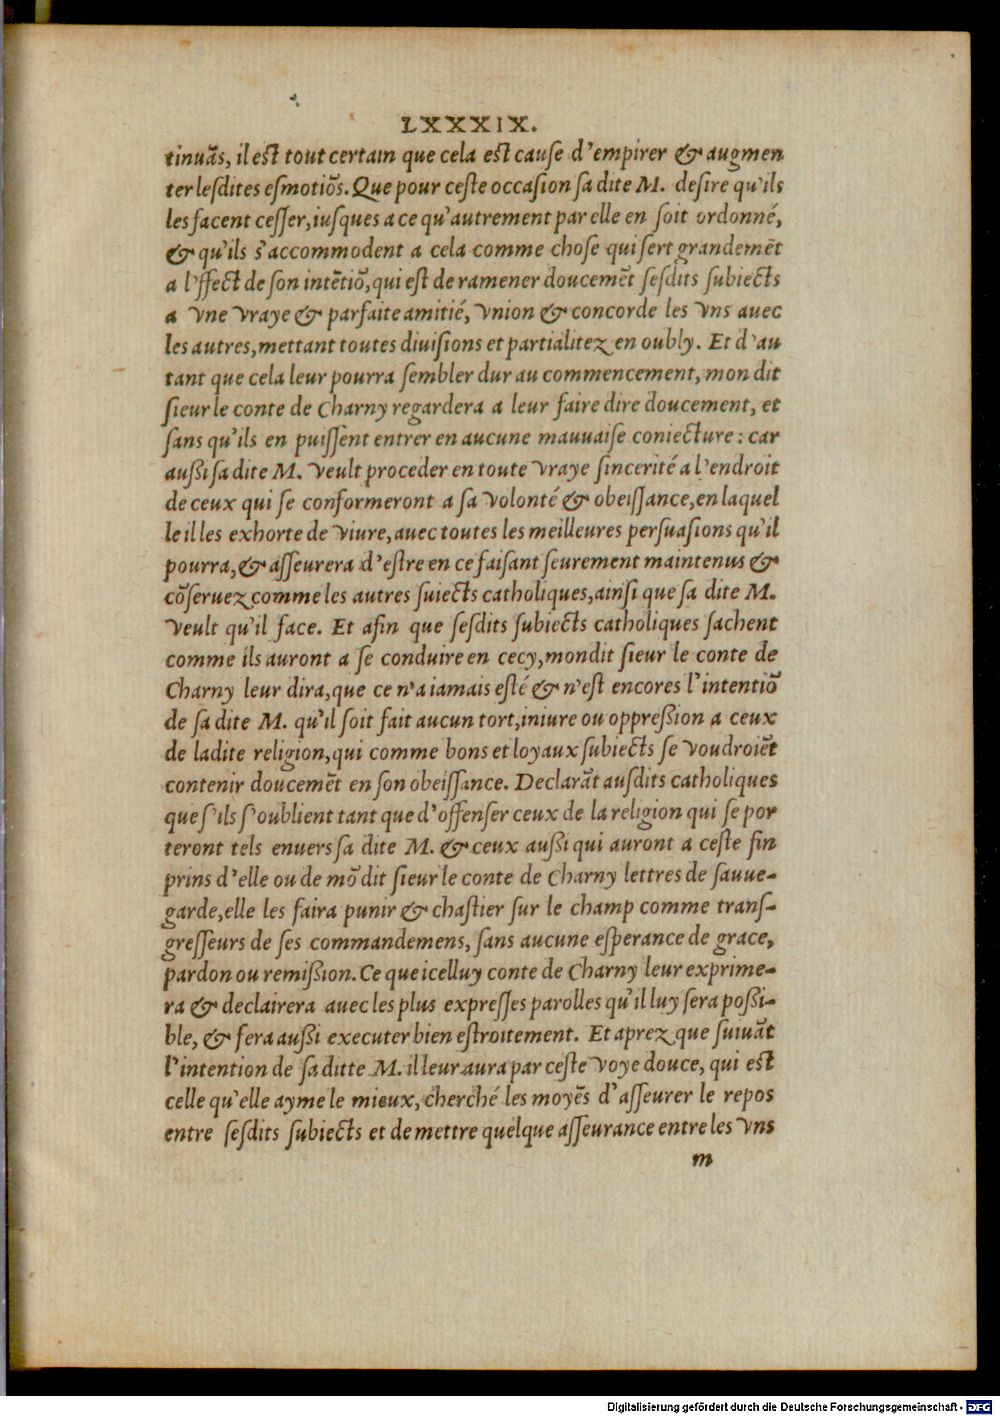 LXXXIX.
tinuãs, il est tout certain que cela est cause d'empirer & augmen
ter lesdites esmotiõs. Que pour ceste occasion sa dite M. desire qu'ils
les facent cesser, iusques a ce qu'autrement par elle en soit ordonné,
& qu'ils s'accommodent a cela comme chose qui sert grandemẽt
a l'ffect de son intẽtiõ, qui est de ramener doucemẽt sesdits subiects
a vne vraye & parfaite amitié, vnion & concorde les vns auec
les autres, mettant toutes diuisions et partialitez en oubly. Et d'au
tant que cela leur pourra sembler dur au commencement, mon dit
sieur le conte de Charny regardera a leur faire dire doucement, et
sans qu'ils en puissent entrer en aucune mauuaise coniecture : car
aussi sa dite M. veult proceder en toute vraye sincerité a l'endroit
de ceux qui se conformeront a sa volonté & obeissance, en laquel
le il les exhorte de viure, auec toutes les meilleures persuasions qu'il
pourra, & asseurera d'estre en ce faisant seurement maintenus &
cõseruez comme les autres suiects catholiques, ainsi que sa dite M.
veult qu'il face. Et afin que sesdits subiects catholiques sachent
comme ils auront a se conduire en cecy, mondit sieur le conte de
Charny leur dira, que ce n'a iamais esté & n'est encores l'intentiõ
de sa dite M. qu'il soit fait aucun tort, iniure ou oppression a ceux
de ladite religion, qui comme bons et loyaux subiects se voudroiẽt
contenir doucemẽt en son obeissance. Declarãt ausdits catholiques
que s'ils s'oublient tant que d'offenser ceux de la religion qui se por
teront tels enuers sa dite M. & ceux aussi qui auront a ceste fin
prins d'elle ou de mõ dit sieur le conte de Charny lettres de sauue-
garde, elle les faira punir & chastier sur le champ comme trans-
gresseurs de ses commandemens, sans aucune esperance de grace,
pardon ou remission. Ce que icelluy conte de Charny leur exprime-
ra & declairera auec les plus expresses parolles qu'il luy sera possi-
ble, & fera aussi executer bien estroitement. Et aprez que suiuãt
l'intention de sa ditte M. il leur aura par ceste voye douce, qui est
celle qu'elle ayme le mieux, cherché les moyẽs d'asseurer le repos
entre sesdits subiects et de mettre quelque asseurance entre les vns
m
Digitalisierung gefördert durch die Deutsche Forschungsgemeinschaft - DFG